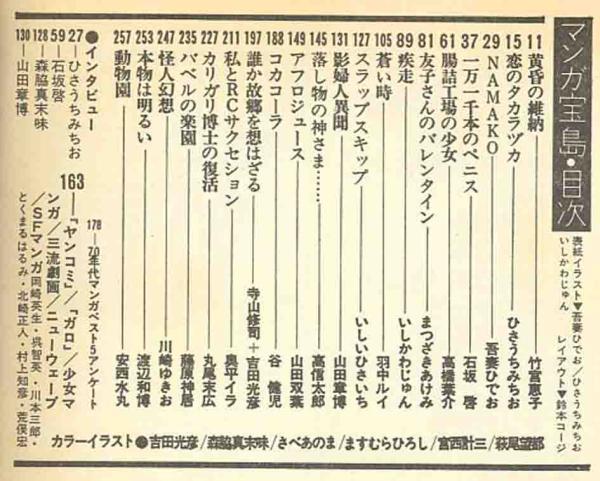 マンガ宝島・目次
表紙イラスト▼吾妻ひでお／ひさうちみちお
いしかわじゅん　レイアウト▼鈴木コージ
11 黄昏の維納 竹宮恵子
15 恋のタカラヅカ ひさうちみちお
29 NAMAKO 吾妻ひでお
37 一万一千本のペニス 石坂 啓
61 腸詰工場の少女 高橋葉介
81 友子さんのバレンタイン まつざきあけみ
89 疾走 いしかわじゅん
105 蒼い時 羽中ルイ
127 スラップスキップ いしいひさいち
131 影婦人異聞 山田章博
145 落し物の神さま…… 高信太郎
149 アフロジュース 山田双葉
188 コカコーラ 谷 健児
197 誰か故郷を想はざる 寺山修司＋吉田光彦
211 私とRCサクセション 奥平イラ
227 カリガリ博士の復活 丸尾末広
235 バベルの楽園 藤原神居
247 怪人幻想 川崎ゆきお
253 本物は明るい 渡辺和博
257 動物園 安西水丸
●インタビュー
27 ひさうちみちお
59 石坂啓
128 森脇真末味
130 山田章博
163 「ヤンコミ」／「ガロ」／少女マ
ンガ／三流劇画／ニューウェーブ
／SFマンガ 岡崎英生・呉智英・川本三郎・
とくまるはるみ・北崎正人・村上知彦・荒俣宏
178 70年代マンガベスト5アンケート
カラーイラスト●吉田光彦／森脇真末味／さべあのま／ますむらひろし／宮西計三／萩尾望都